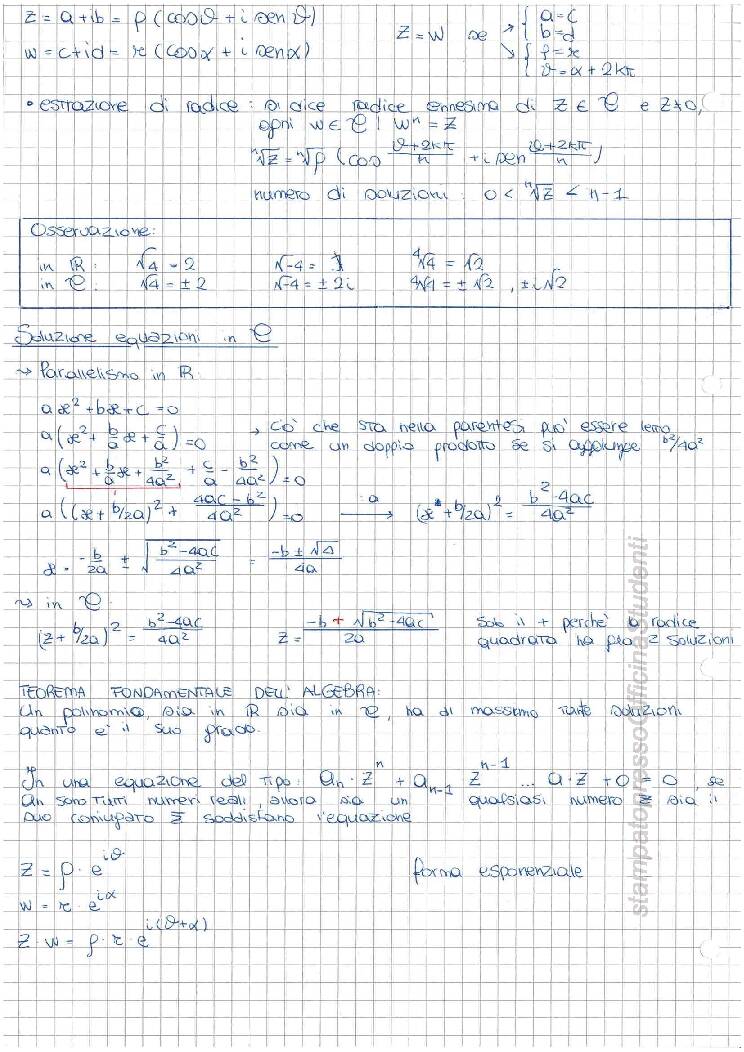 z = a+ib = ρ (cosϑ + i senϑ)
w = c+id = r (cosα + i senα)
z = w se { a=c
b=d
{ ρ = r
ϑ = α + 2kπ
• estrazione di radice: si dice radice ennesima di z ∈ C e z≠0,
ogni w ∈ C | wⁿ = z
ⁿ√z = ⁿ√ρ (cos (ϑ+2kπ)/n + i sen (ϑ+2kπ)/n)
numero di soluzioni: 0 < ⁿ√z < n-1
Osservazione:
in R: √4 = 2 √-4 = ∄ ⁴√4 = √2
in C: √4 = ± 2 √-4 = ± 2i ⁴√4 = ± √2, ± i√2
Soluzione equazioni in C
~> Parallelismo in R:
ax² + bx + c = 0
a(x² + b/a x + c/a) = 0 → ciò che sta nella parentesi può essere letto
come un doppio prodotto se si aggiunge b²/4a²
a(x² + b/a x + b²/4a² + c/a - b²/4a²) = 0
a((x + b/2a)² + (4ac - b²)/4a²) = 0 —a→ (x + b/2a)² = (b² - 4ac)/4a²
x = -b/2a ± √((b² - 4ac)/4a²) = (-b ± √Δ)/4a
~> in C
(z + b/2a)² = (b² - 4ac)/4a² z = (-b + √(b² - 4ac))/2a solo il + perchè la radice
quadrata ha già 2 soluzioni
TEOREMA FONDAMENTALE DELL'ALGEBRA:
Un polinomio, sia in R sia in C, ha al massimo tante soluzioni
quanto è il suo grado.
In una equazione del tipo: aₙ · zⁿ + aₙ₋₁ zⁿ⁻¹ ... a · z + 0 = 0, se
an sono tutti numeri reali, allora sia un qualsiasi numero z sia il
suo coniugato z̄ soddisfano l'equazione
z = ρ · e^(iϑ) forma esponenziale
w = r · e^(iα)
z · w = ρ · r · e^(i(ϑ+α))
stampatopressoOfficinaStudenti